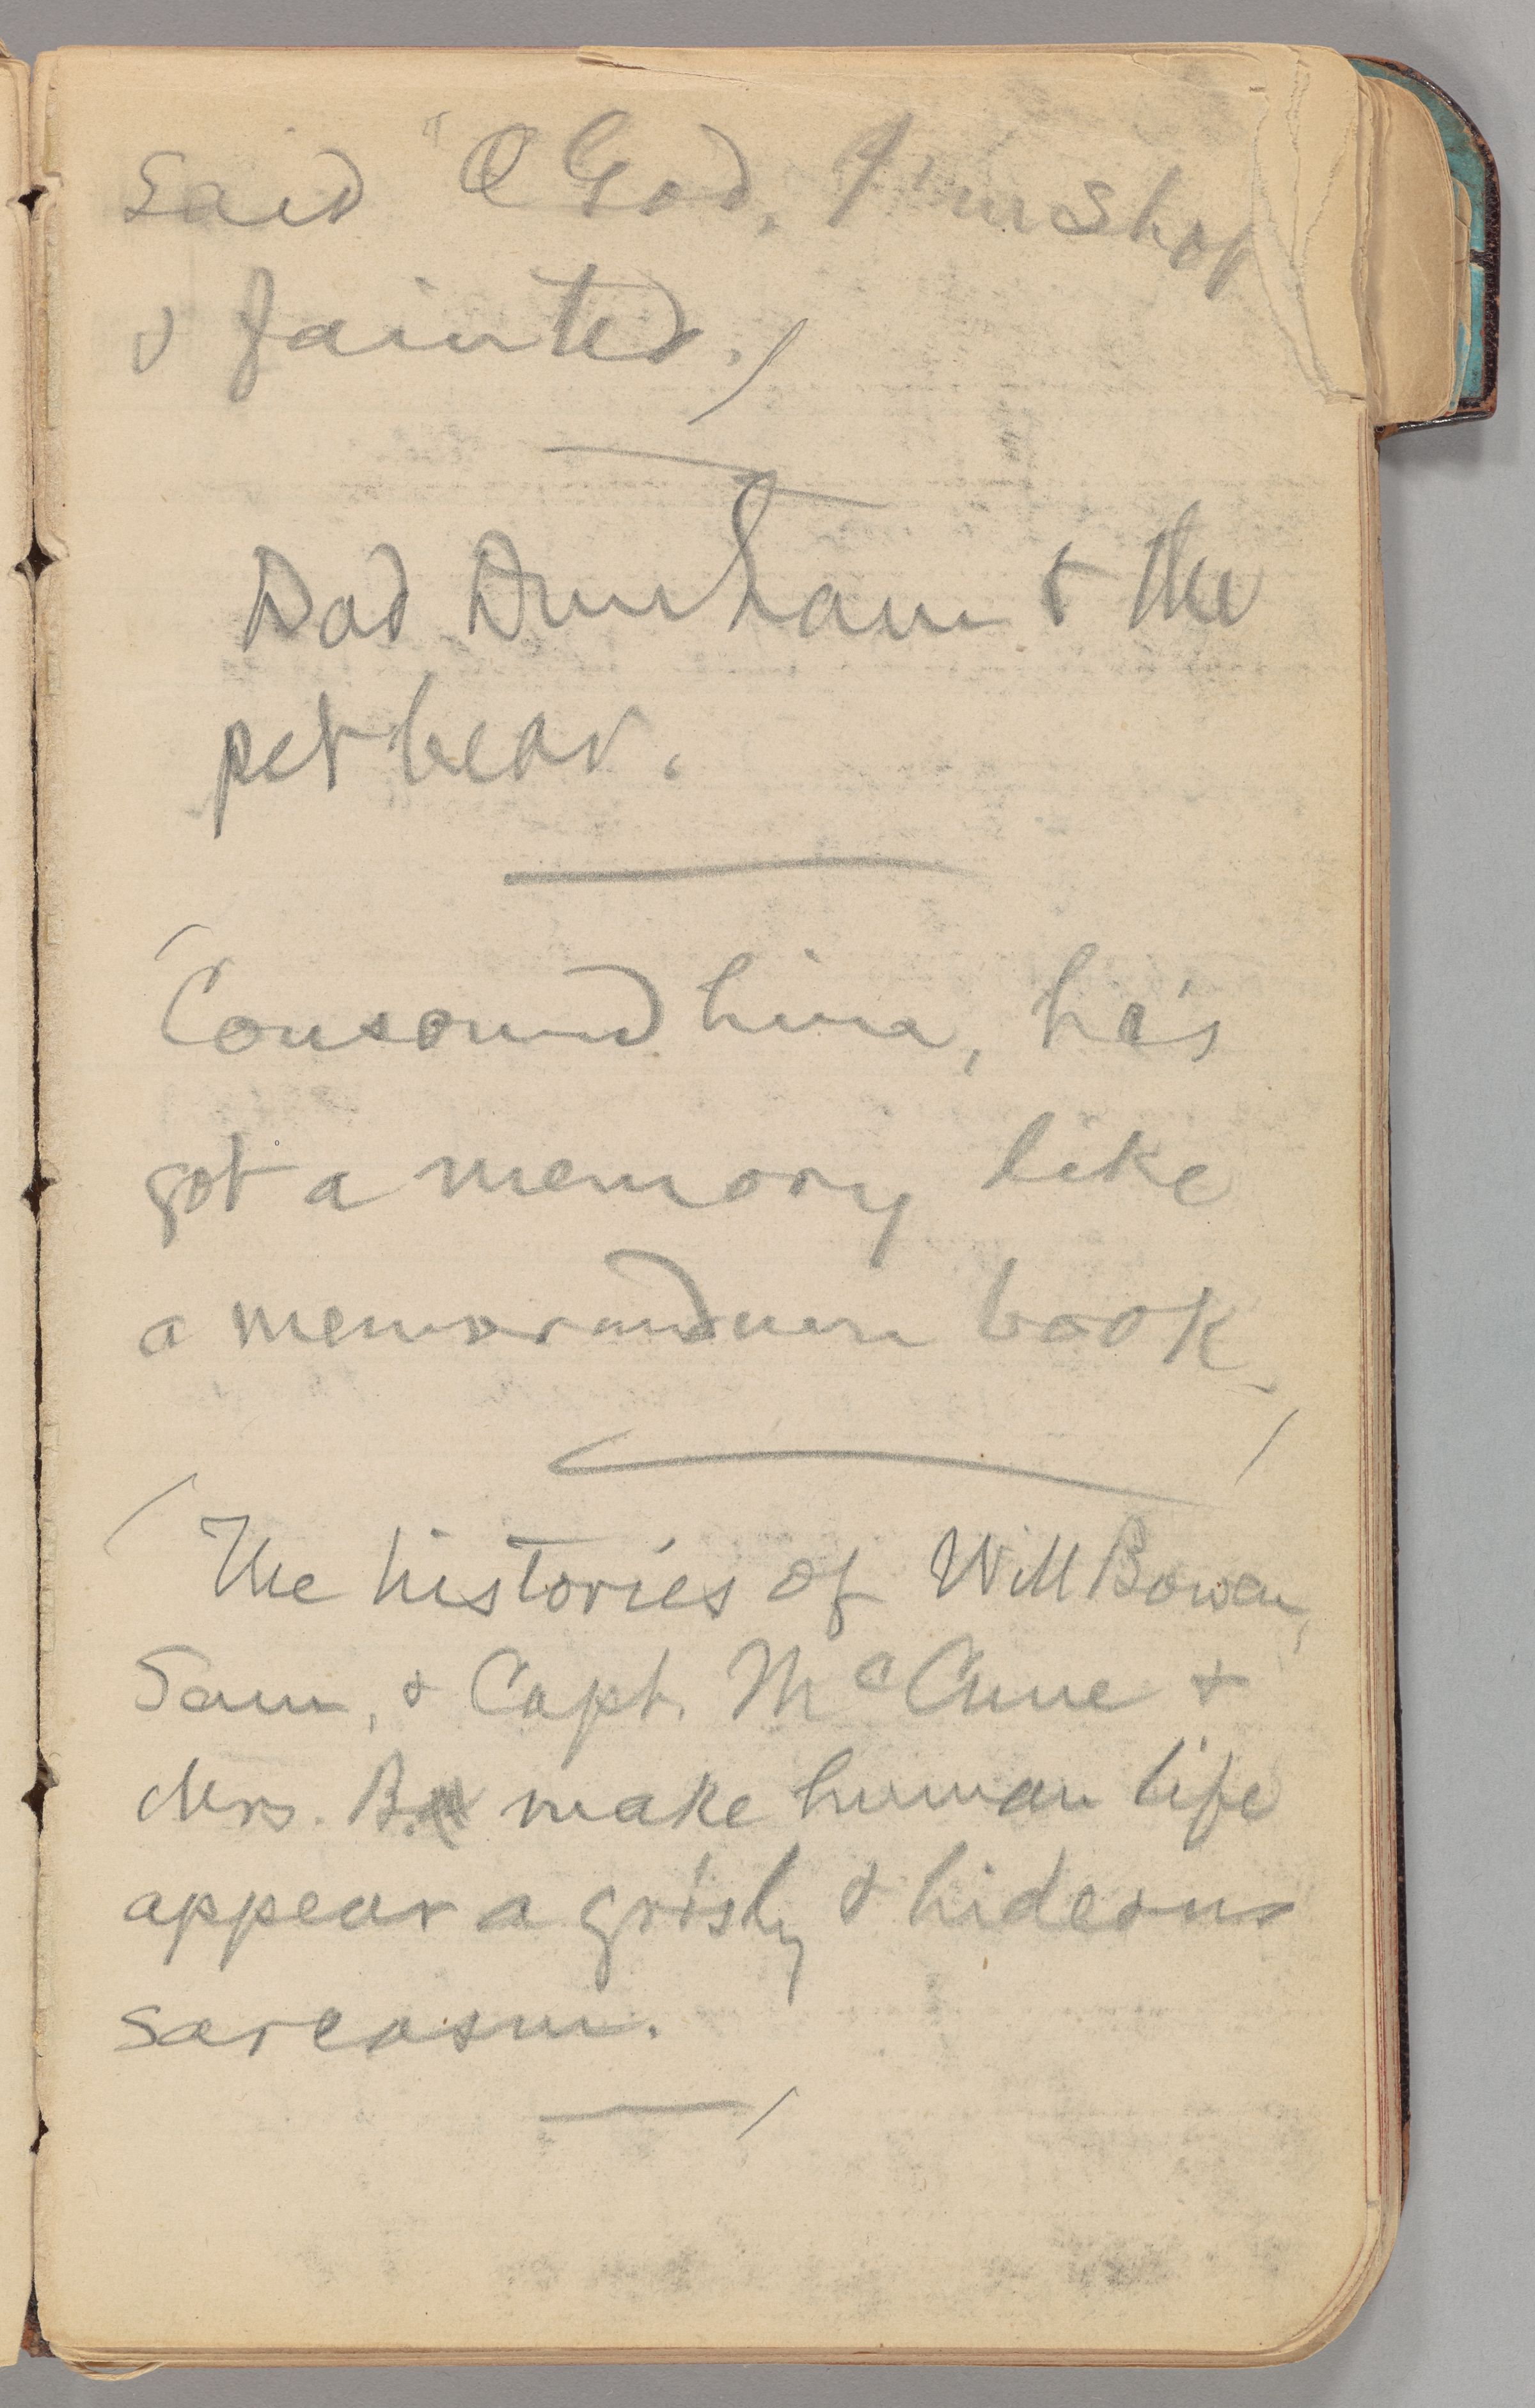 said "O God, I'm shot
& fainted.)
Dad Dunham & the
pet bear.
(Consound him, he's
got a memory like
a memorandum book.)
(The histories of Will Bowen,
Sam, & Capt. McCune &
Mrs. B. make human life
appear a grisly & hideous
sarcasm.)